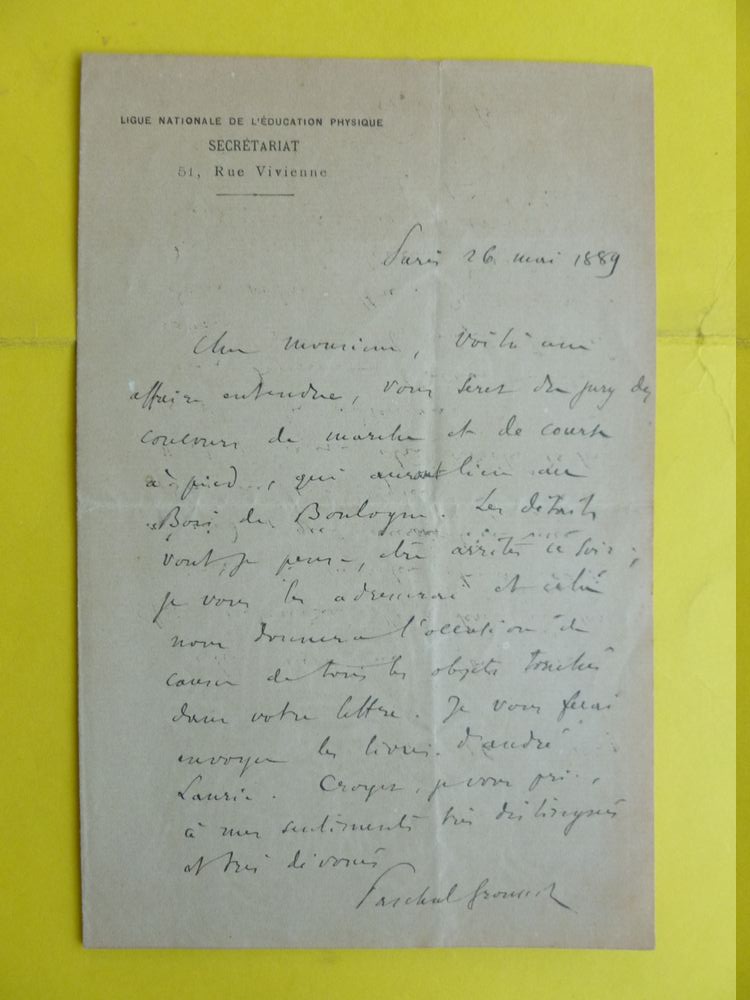 LIGUE NATIONALE DE L'ÉDUCATION PHYSIQUE
SECRÉTARIAT
51, Rue Vivienne
Paris 26 mai 1889
Cher monsieur, Voilà une
affaire entendue, vous serez du jury des
concours de marche et de course
à pied, qui auront lieu au
Bois de Boulogne. Les détails
vont, je pense, être arrêtés ce soir ;
je vous les adresserai et cela
nous donnera l'occasion de
causer de tous les objets touchés
dans votre lettre. Je vous ferai
envoyer les livres d'André
Laurie. Croyez, je vous prie,
à mes sentiments très distingués
et très dévoués
Paschal Grousset